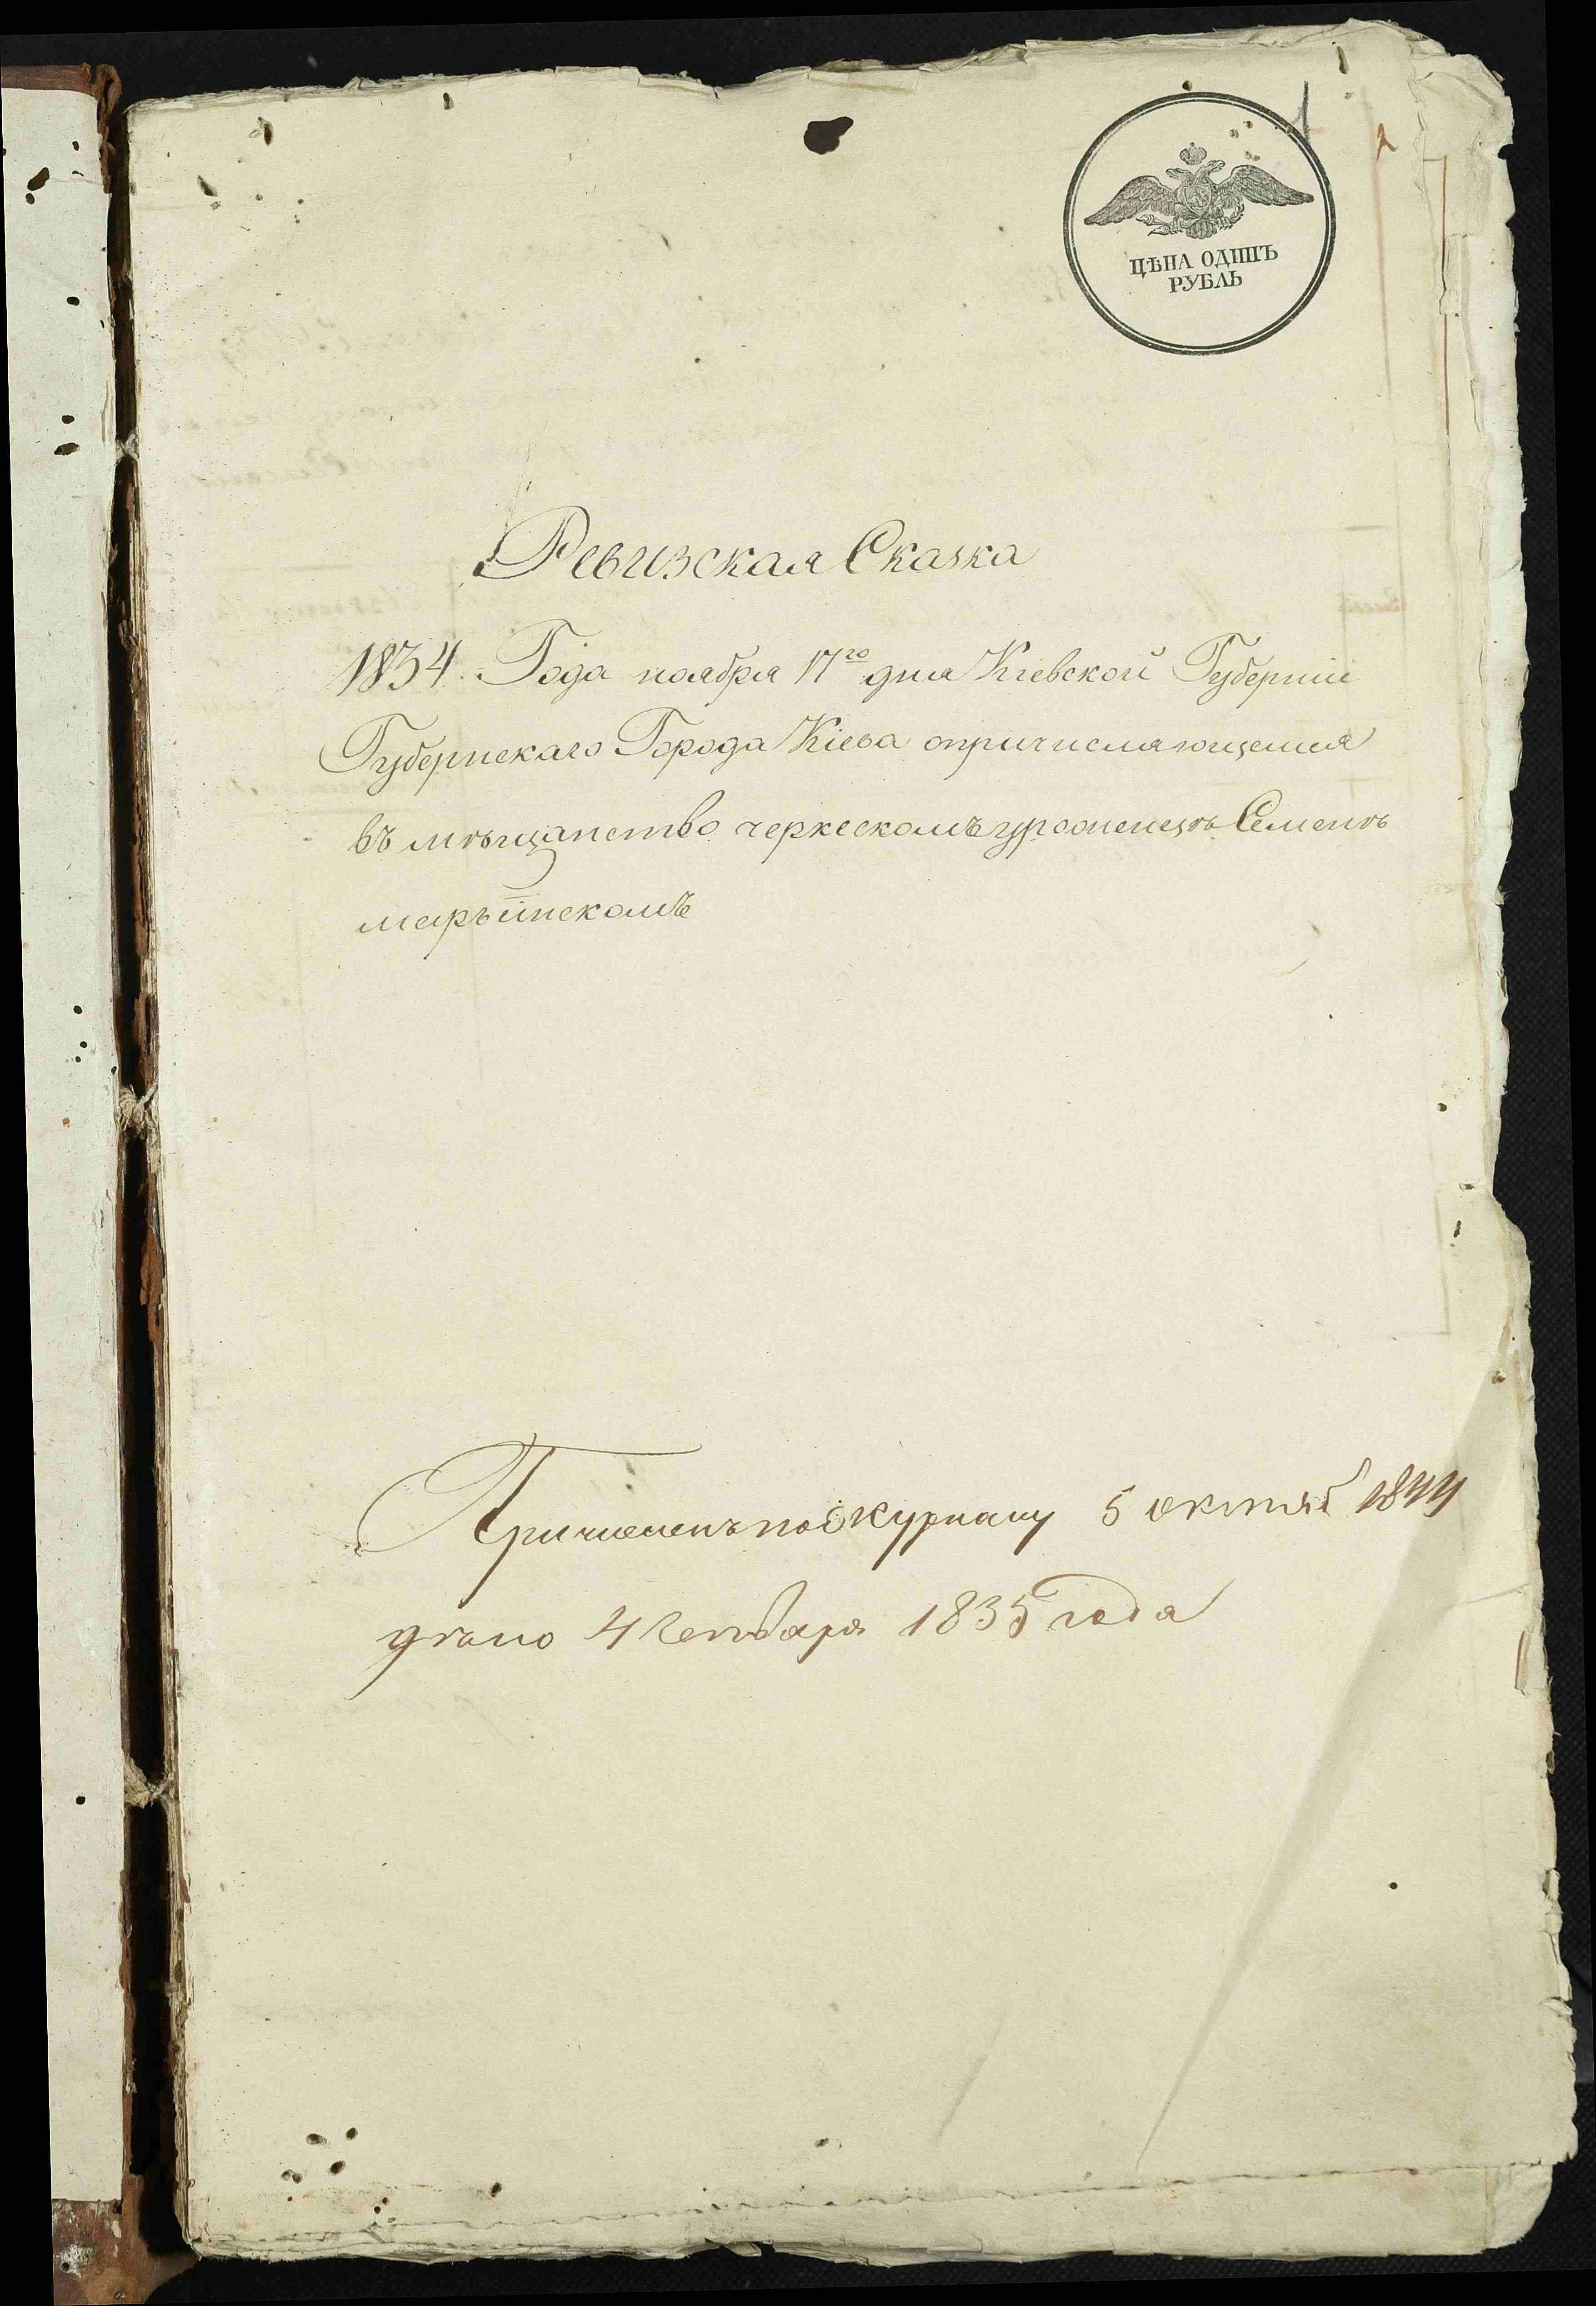 1
ЦѢНА ОДИНЪ
РУБЛЬ
Ревизская Сказка
1834. Года ноября 17го дня Кіевской Губерніи
Губернскаго Города Кіева опричисляющемся
въ мѣщанство черкескомъ уроженецѣ Семенѣ
марьинскомъ
Причисленъ по журналу 5 октяб 1844
дѣло 4 Генваря 1835 года